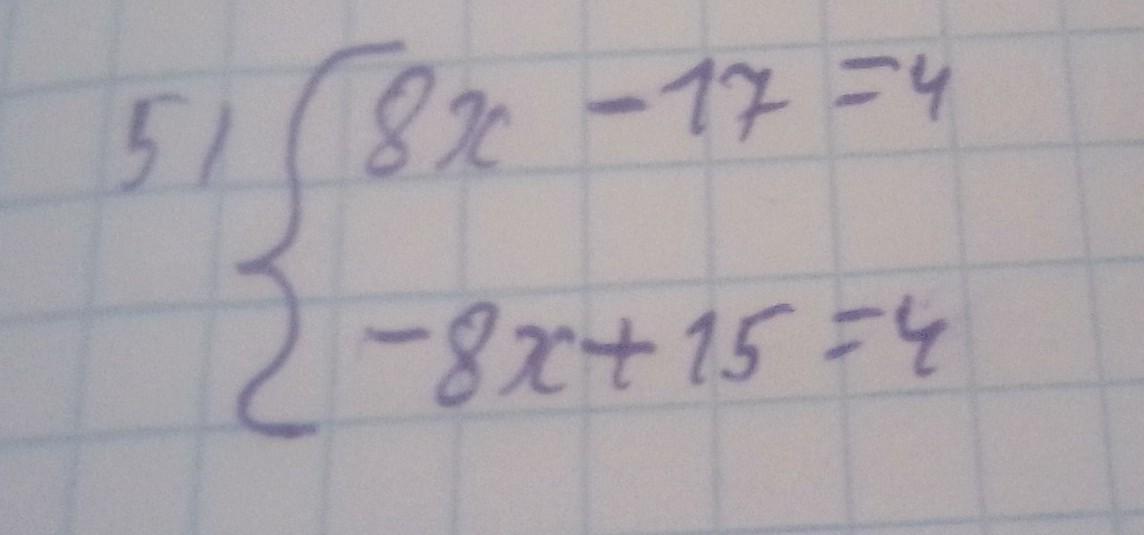 5) 8x - 17 = 4
-8x + 15 = 4